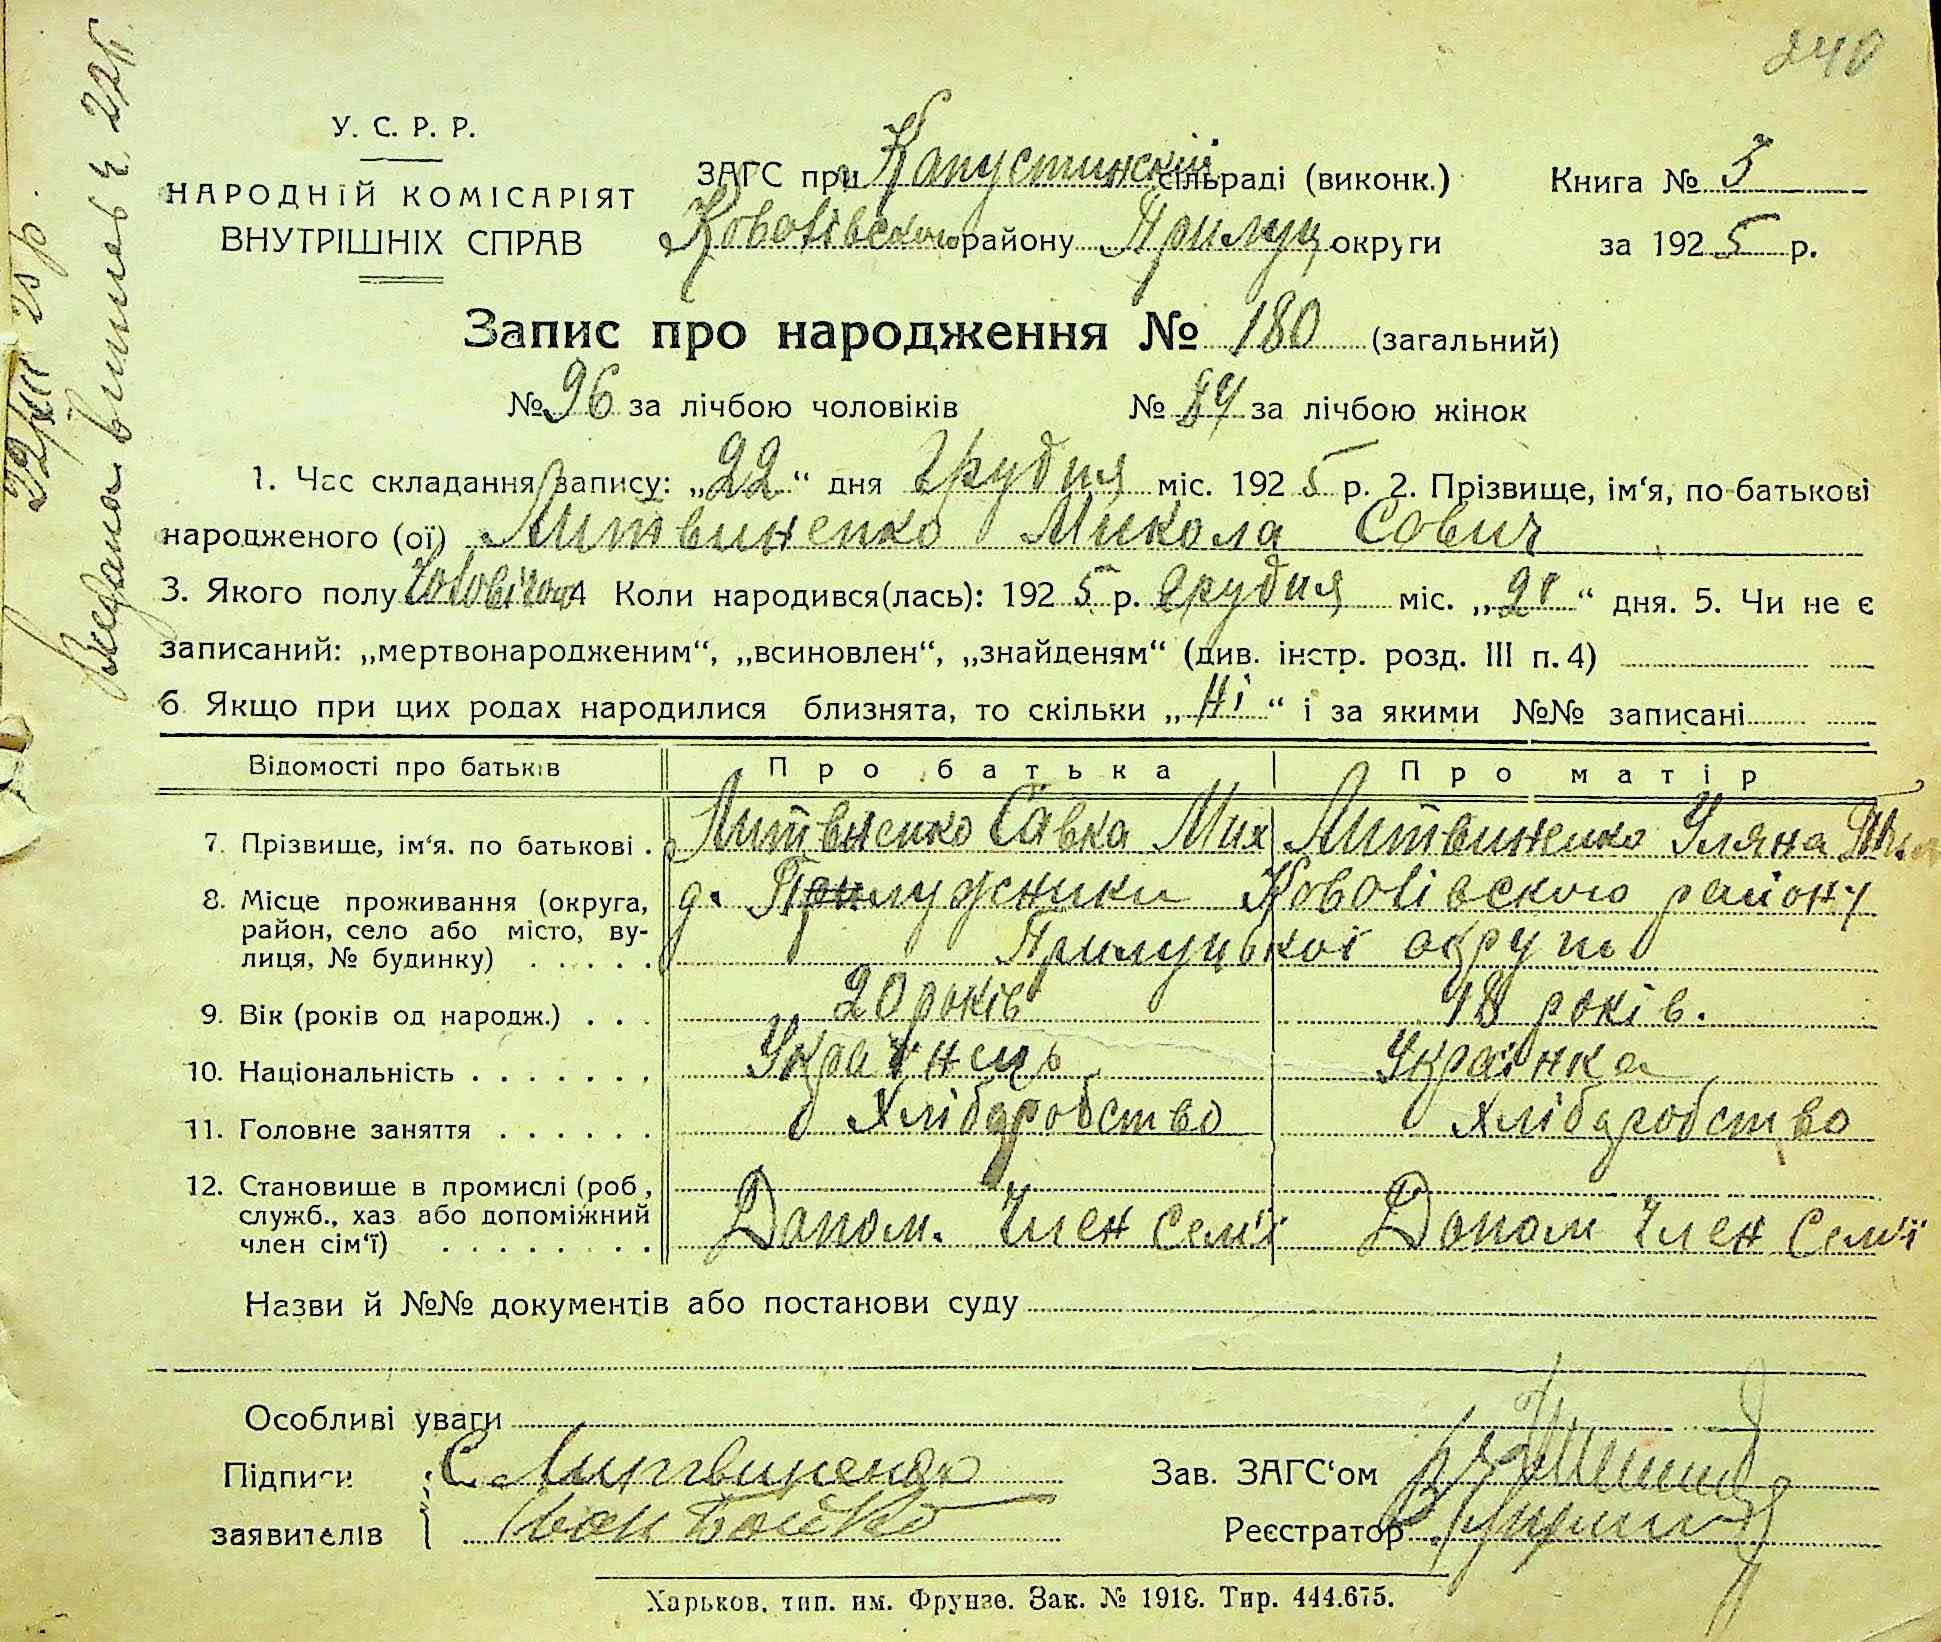 240
У. С. Р. Р.
НАРОДНІЙ КОМІСАРІЯТ
ВНУТРІШНІХ СПРАВ
ЗАГС при Капустинскій сільраді (виконк.)
району Прилуц округи
Книга № 3
за 1925 р.
Запис про народження № 180 (загальний)
№ 96 за лічбою чоловіків № 84 за лічбою жінок
1. Час складання запису: „22“ дня Грудня міс. 1925 р. 2. Прізвище, ім‘я, по-батькові
народженого (ої) Литвиненко Микола Сович
3. Якого полу 4 Коли народився(лась): 1925 р. Грудня міс. „21“ дня. 5. Чи не є
записаний: „мертвонародженим“, „всиновлен“, „знайденям“ (див. інстр. розд. III п. 4)
6 Якщо при цих родах народилися близнята, то скільки „Ні“ і за якими №№ записані
Відомості про батьків Про батька Про матір
7. Прізвище, ім‘я. по батькові . Литвненко Савка Мих Литвиненко Уляна
8. Місце проживання (округа, район, село або місто, вулиця, № будинку) . . . . . району
Прилуцької округи
9. Вік (років од народж.) . . . 20 років 18 років.
10. Національність . . . . . . . Українець Українка
11. Головне заняття . . . . . . Хліборобство Хліборобство
12. Становише в промислі (роб, служб., хаз або допоміжний член сім‘ї) . . . . . . . . Допом. Член Сем'ї Допом Член Сем'ї
Назви й №№ документів або постанови суду
Особливі уваги
Підписи С Литвиненко Зав. ЗАГС‘ом
заявителів Іван Бойко Реєстратор
Харьков, тип. им. Фрунзе. Зак. № 1918. Тир. 444.675.